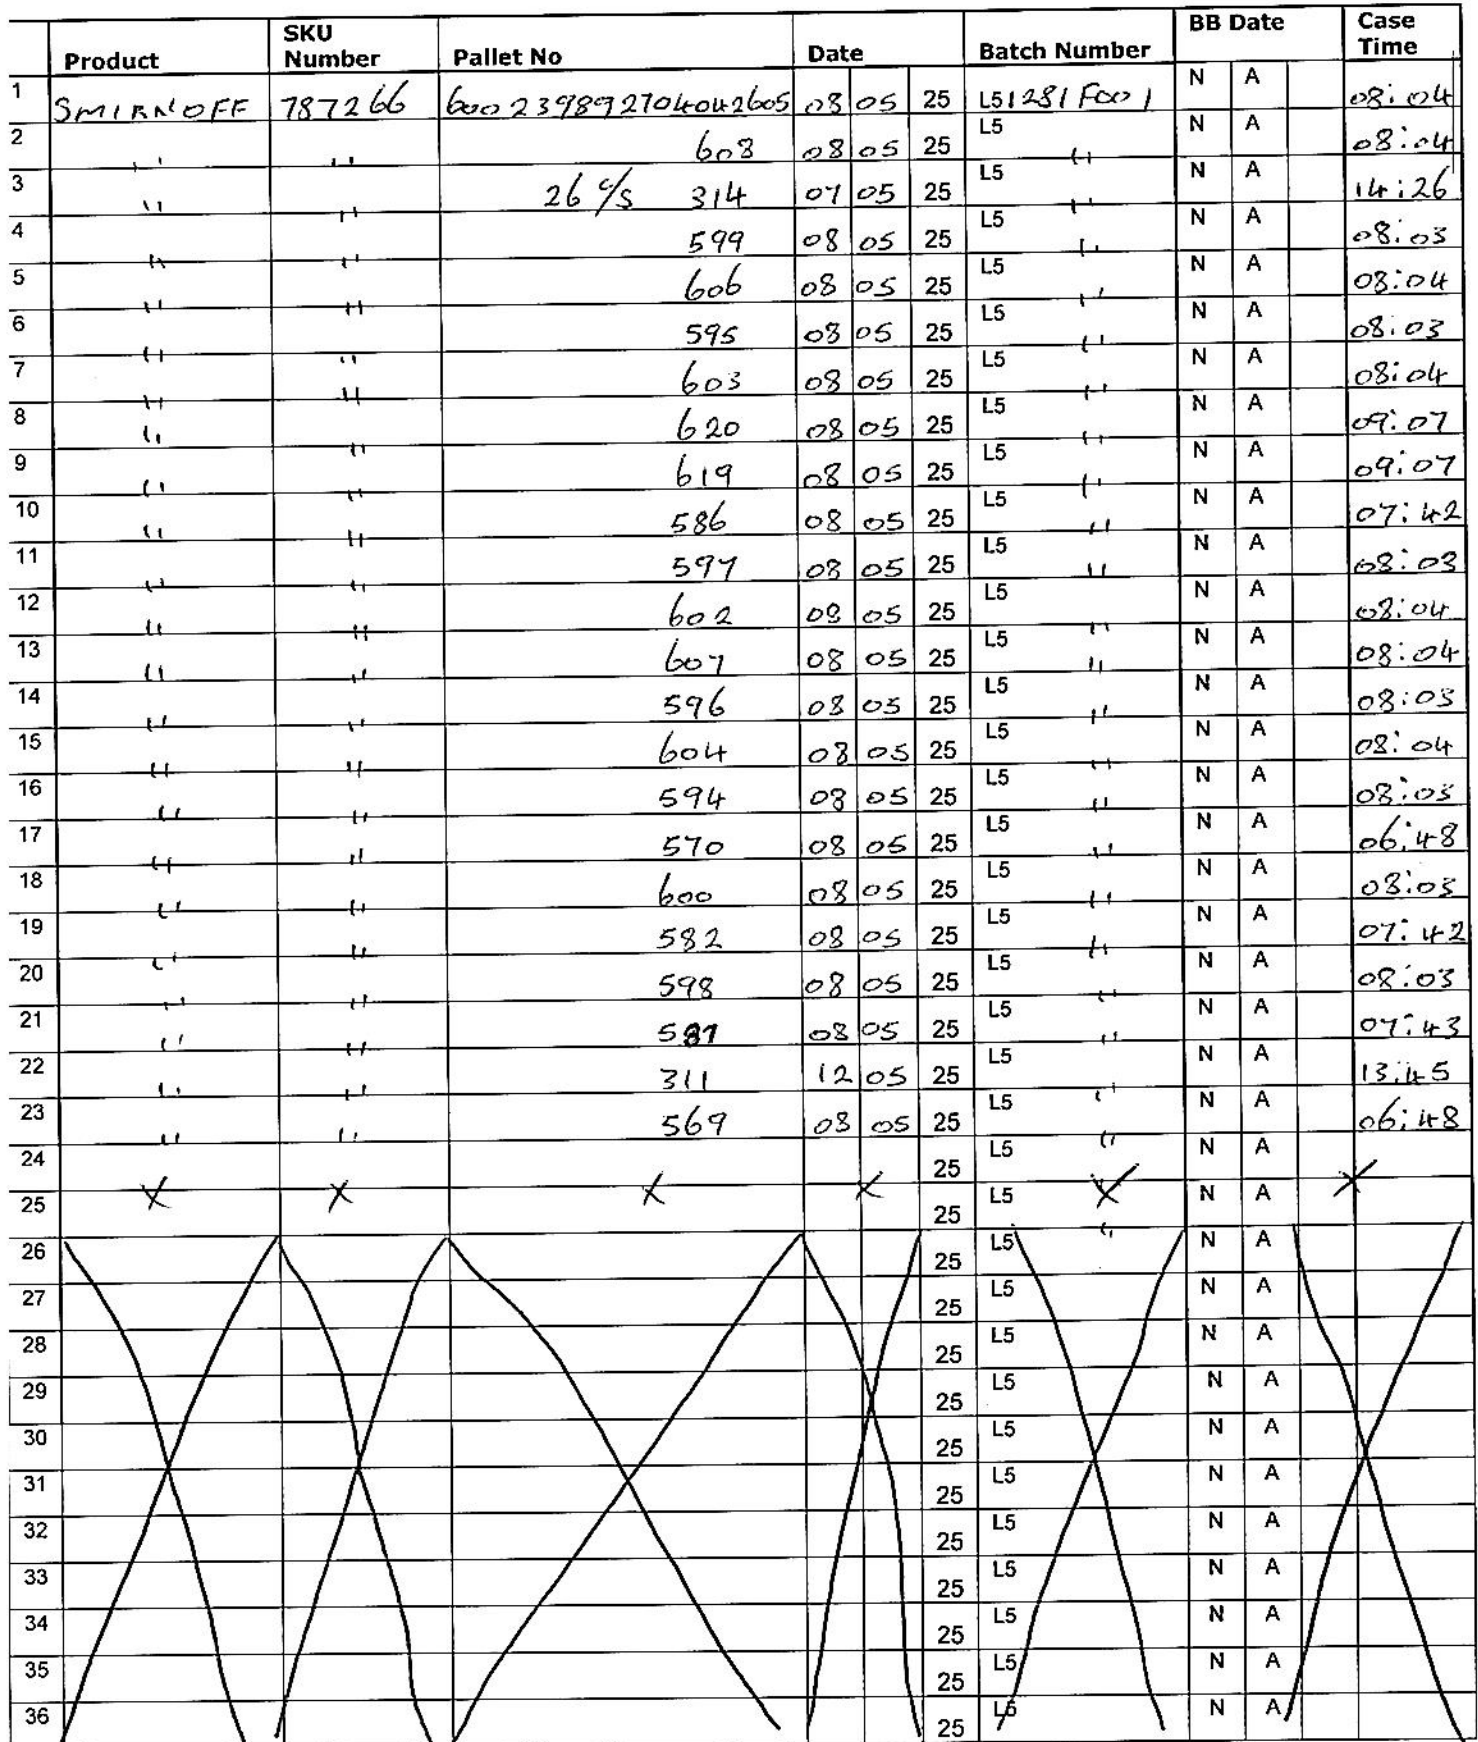 Product SKU Number Pallet No Date Batch Number BB Date Case Time
1 SMIRNOFF 787266 600239892704042605 08 05 25 L51281F001 N A 08:04
2 " " 608 08 05 25 L5 " N A 08:04
3 " " 26 c/s 314 07 05 25 L5 " N A 14:26
4 " " 599 08 05 25 L5 " N A 08:03
5 " " 606 08 05 25 L5 " N A 08:04
6 " " 595 08 05 25 L5 " N A 08:03
7 " " 603 08 05 25 L5 " N A 08:04
8 " " 620 08 05 25 L5 " N A 09:07
9 " " 619 08 05 25 L5 " N A 09:07
10 " " 586 08 05 25 L5 " N A 07:42
11 " " 597 08 05 25 L5 " N A 08:03
12 " " 602 08 05 25 L5 " N A 08:04
13 " " 607 08 05 25 L5 " N A 08:04
14 " " 596 08 05 25 L5 " N A 08:03
15 " " 604 08 05 25 L5 " N A 08:04
16 " " 594 08 05 25 L5 " N A 08:03
17 " " 570 08 05 25 L5 " N A 06:48
18 " " 600 08 05 25 L5 " N A 08:03
19 " " 582 08 05 25 L5 " N A 07:42
20 " " 598 08 05 25 L5 " N A 08:03
21 " " 587 08 05 25 L5 " N A 07:43
22 " " 311 12 05 25 L5 " N A 13:45
23 " " 569 08 05 25 L5 " N A 06:48
24 25 L5 " N A
25 X X X X 25 L5 " N A X
26 25 L5 " N A
27 25 L5 N A
28 25 L5 N A
29 25 L5 N A
30 25 L5 N A
31 25 L5 N A
32 25 L5 N A
33 25 L5 N A
34 25 L5 N A
35 25 L5 N A
36 25 L5 N A